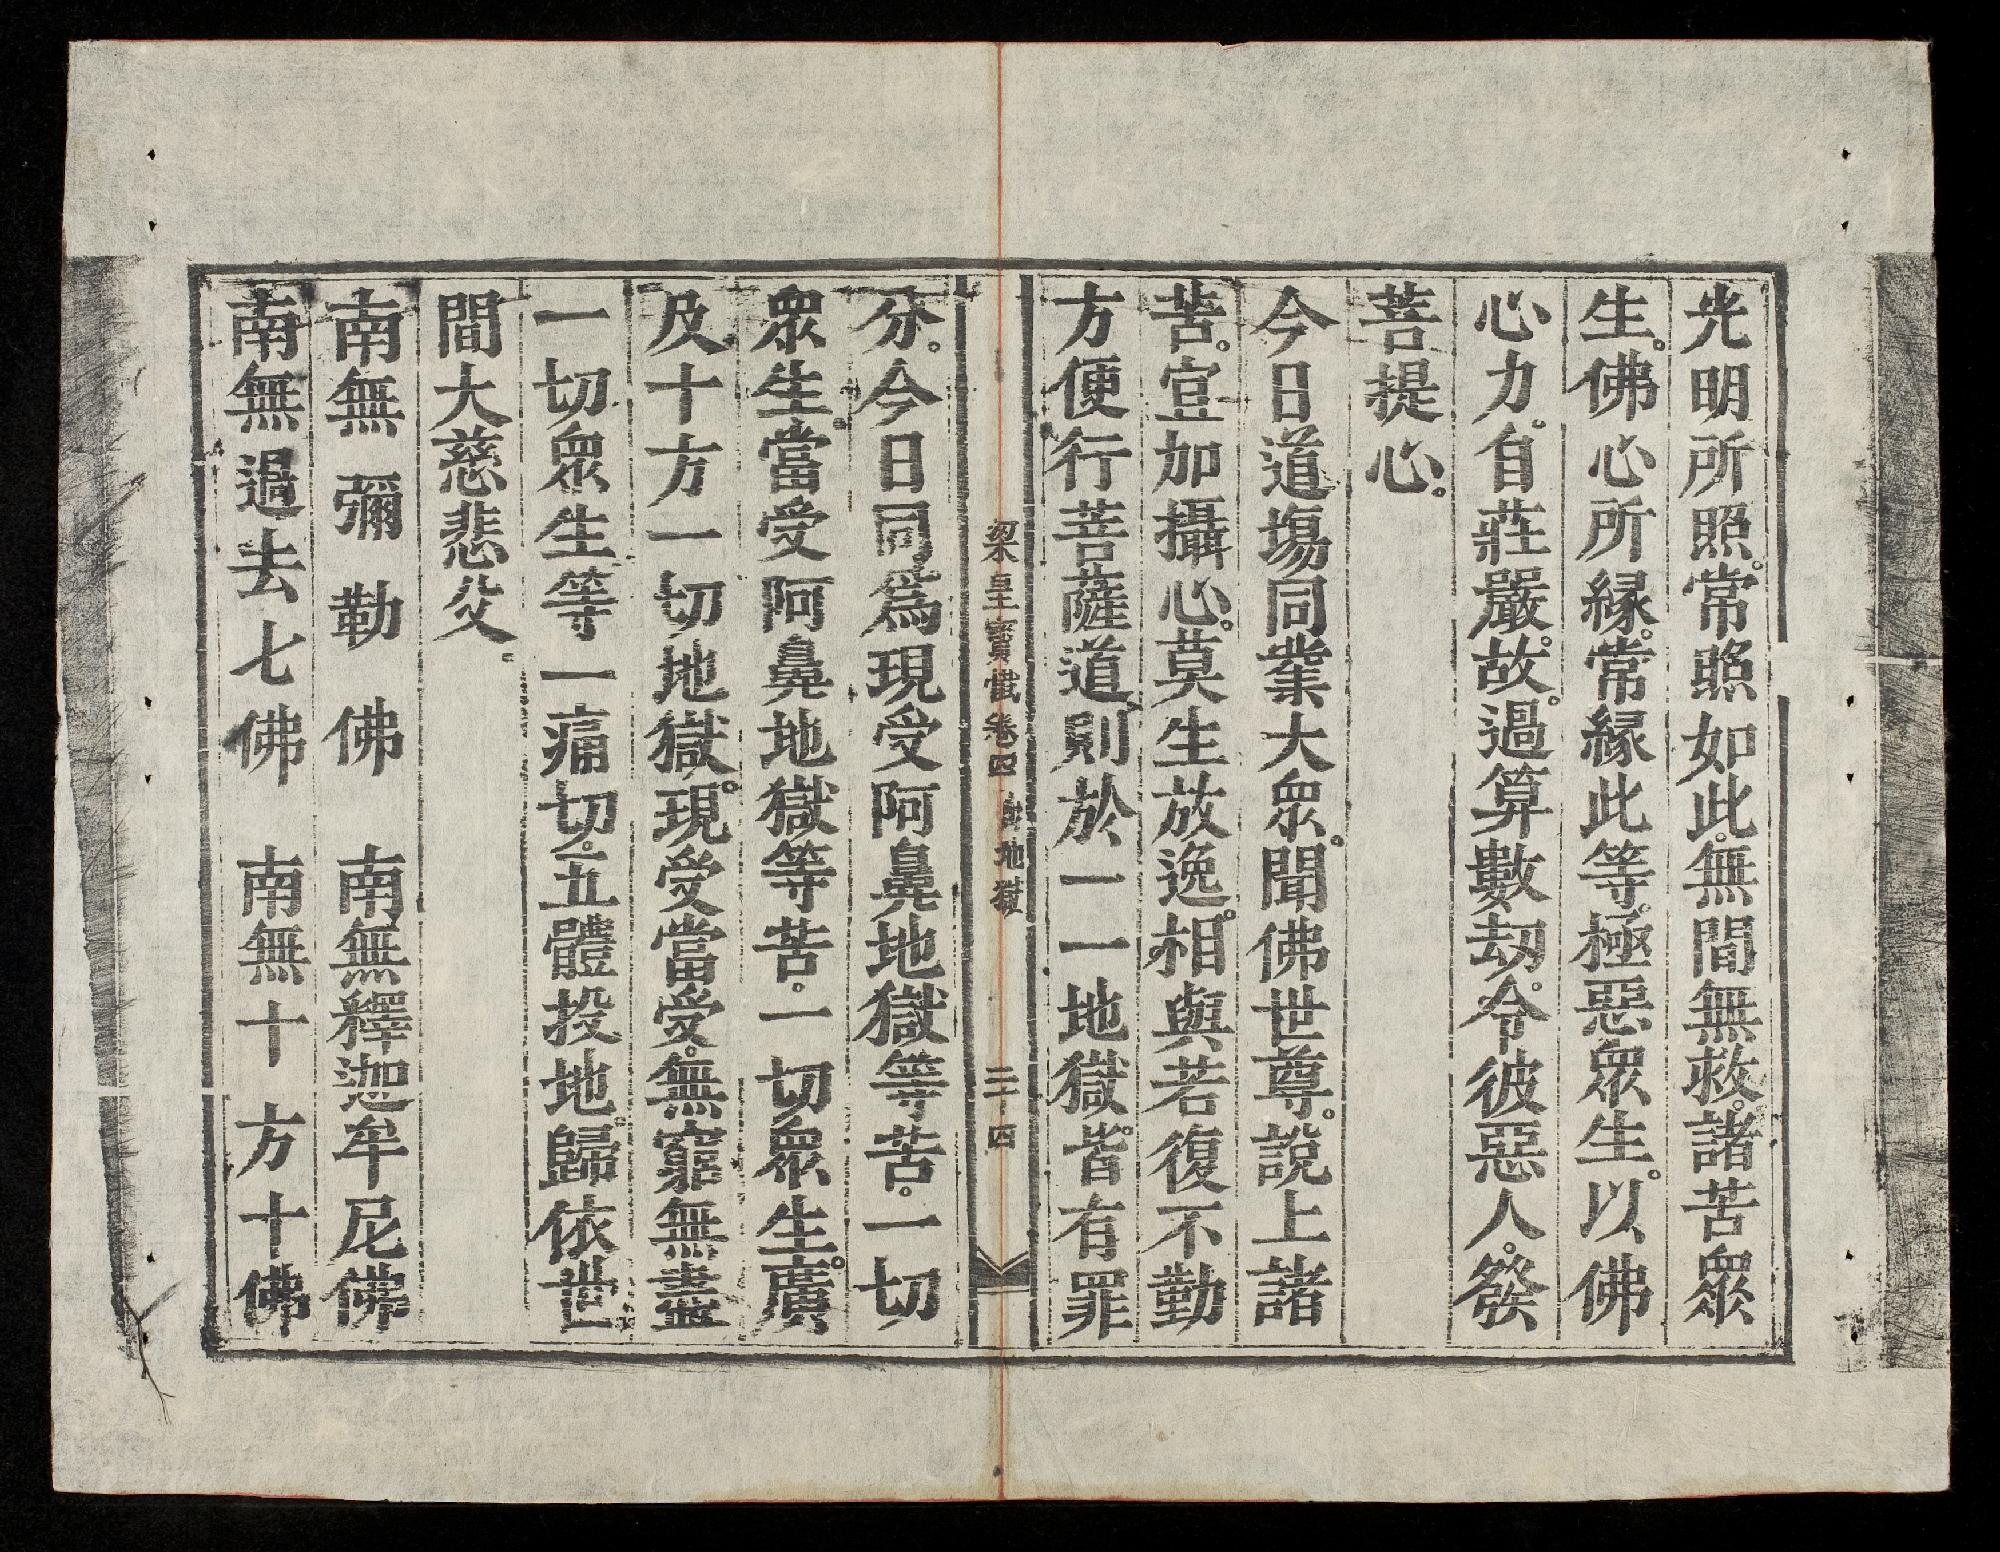 光明所照。常照如此。無間無救。諸苦眾
生。佛心所緣。常緣此等。極惡眾生。以佛
心力。自莊嚴故。過算數劫。令彼惡人。發
菩提心。
今日道場同業大眾。聞佛世尊。說上諸
苦。宜加攝心。莫生放逸。相與若復不勤
方便行菩薩道。則於一一地獄。皆有罪
梁皇寶懺卷四 地獄 二十四
分。今日同為現受阿鼻地獄等苦。一切
眾生。當受阿鼻地獄等苦。一切眾生。廣
及十方一切地獄。現受當受。無窮無盡
一切眾生等一痛切。五體投地。歸依世
間大慈悲父。
南無彌勒佛 南無釋迦牟尼佛
南無過去七佛 南無十方十佛